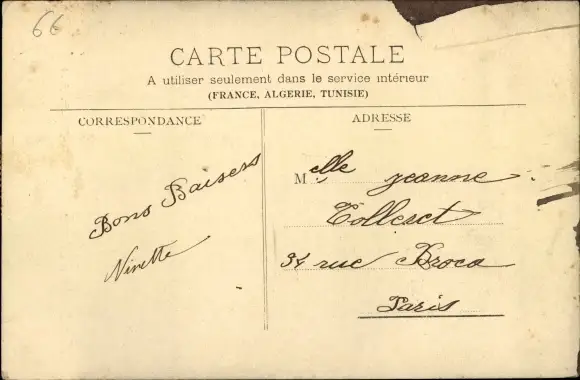 66
CARTE POSTALE
A utiliser seulement dans le service intérieur
(FRANCE, ALGERIE, TUNISIE)
CORRESPONDANCE
ADRESSE
Bons Baisers
Ninette
Melle Jeanne
34 rue Broca
Paris